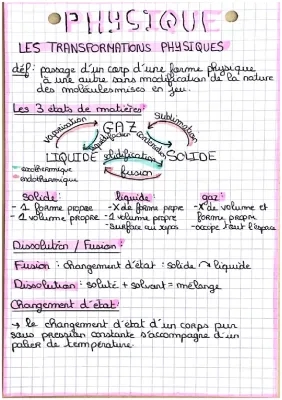 PHYSIQUE
LES TRANSFORMATIONS PHYSIQUES
déf: passage d'un corp d'une forme physique
à une autre sans modification de la nature
des molécules mises en jeu.
Les 3 états de matières:
GAZ
vaporisation
liquéfaction
condensation
sublimation
LIQUIDE
solidification
SOLIDE
fusion
exothermique
endothermique
solide: liquide: gaz:
- 1 forme propre - X de forme propre - X de volume et
- 1 volume propre - 1 volume propre forme propre
- surface au repos - occupe tout l'espace
Dissolution / Fusion:
Fusion: changement d'état: solide ↷ liquide
Dissolution: soluté + solvant = mélange
Changement d'état:
→ le changement d'état d'un corps pur
sous pression constante s'accompagne d'un
palier de température.